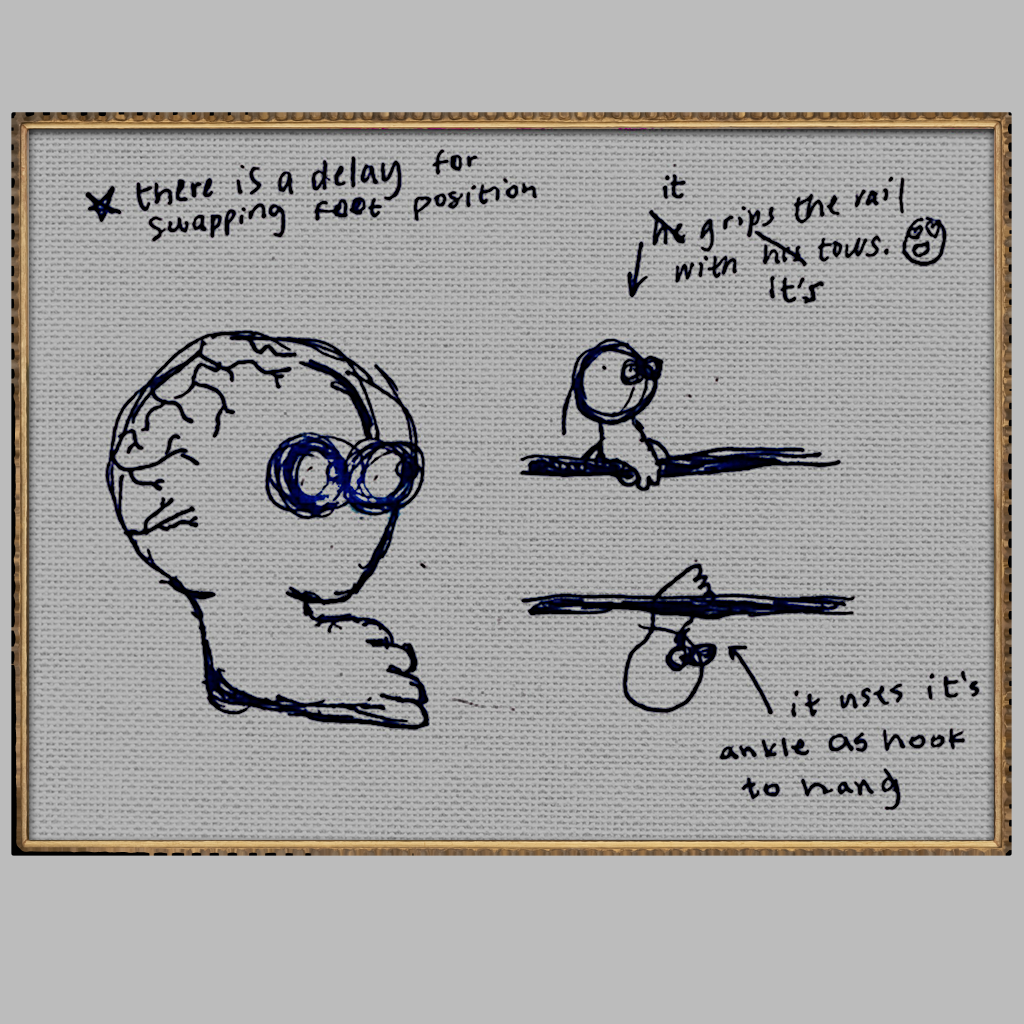 ★ there is a delay for
swapping foot position
it
he grips the rail
with his tows.
It's
it uses it's
ankle as hook
to hang